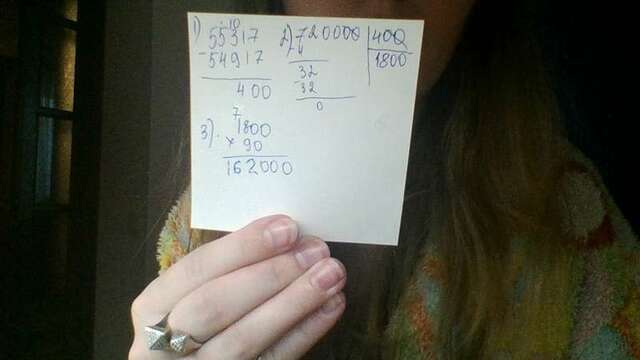 1) 10
55317
-54917
400
2) 720000 | 400
4 | 1800
32
32
0
3). 7
1800
× 90
162000